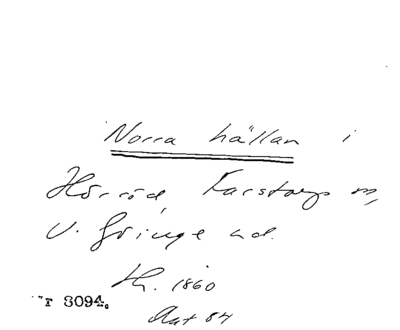 Norra hällan i
Hörröd, Karstorps m,
V. Göinge hd.
th. 1860
3094.
Ant 84